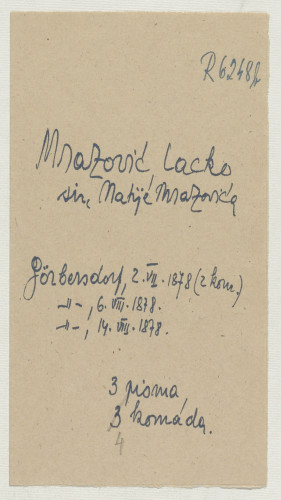 R6248b
Mrazović, Lacko
sin, Matije Mrazovića
Görbersdorf, 2. VII. 1878 (2 kom.)
-"-, 6. VIII. 1878.
-"-, 14. VIII. 1878.
3 pisma
3 komáda.
4